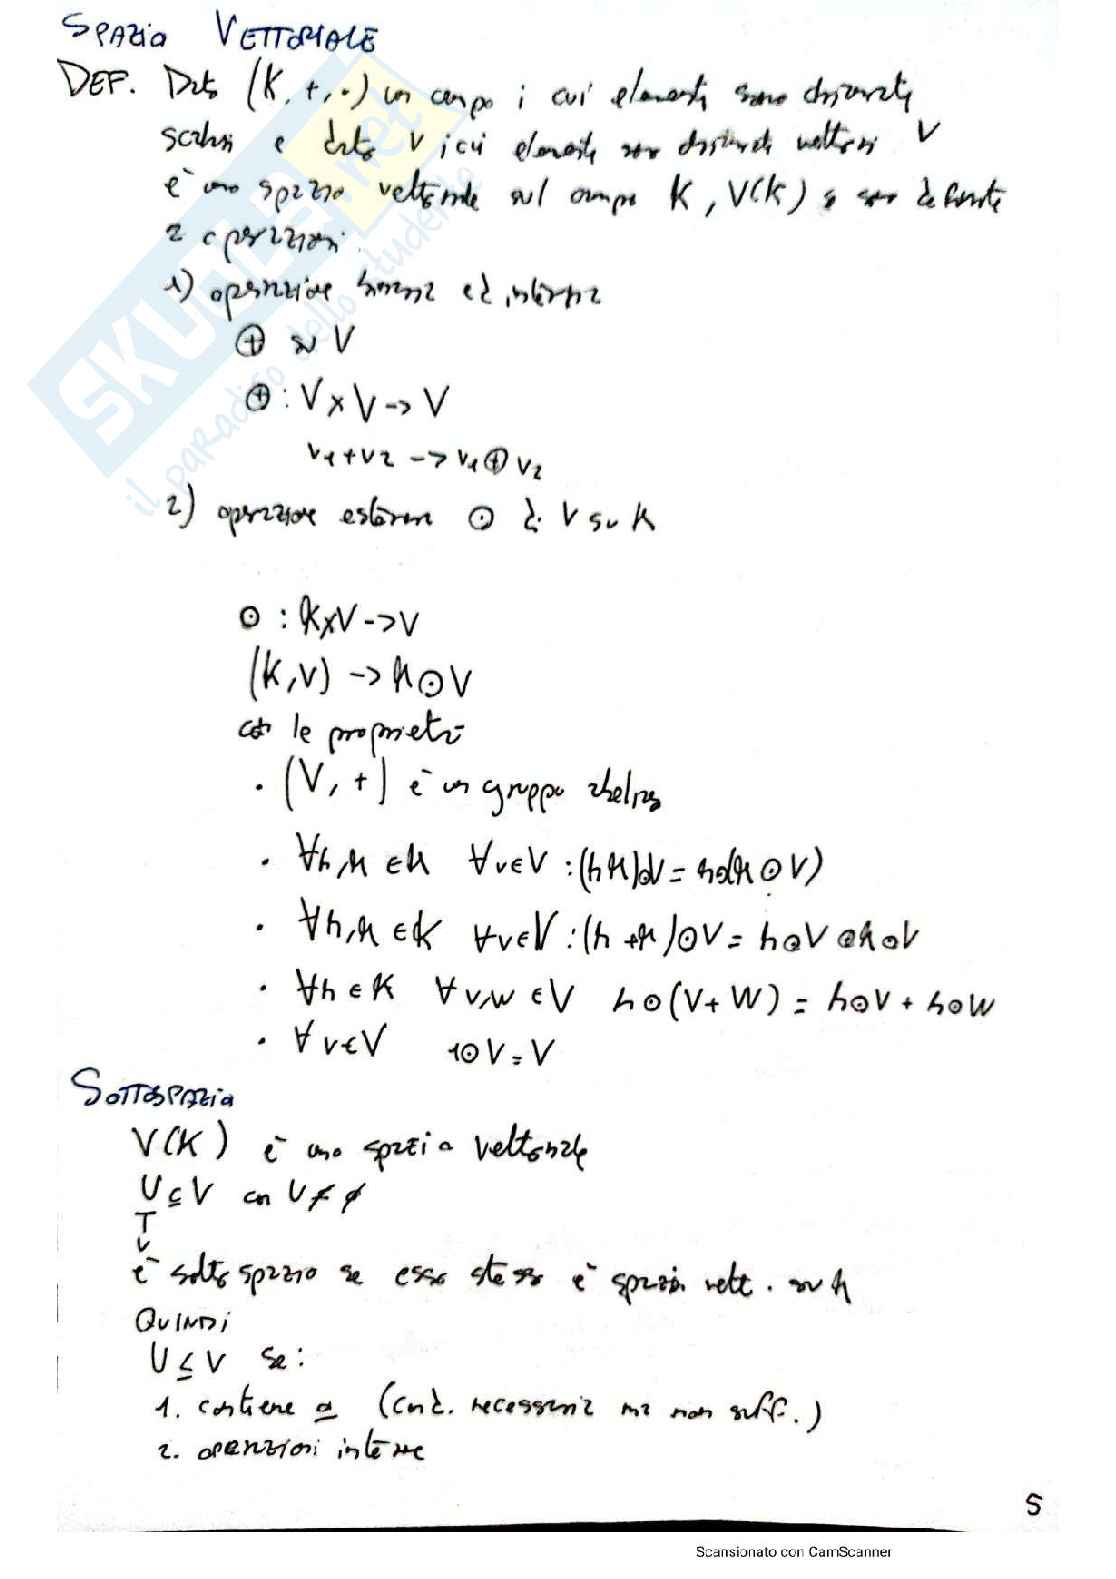 SPAZIO VETTORIALE
DEF. Dato (K, +, ·) un campo i cui elementi sono chiamati
scalari e dato V i cui elementi son chiamati vettori V
è uno spazio vettoriale sul campo K, V(K) se son definite
2 operazioni.
1) operazione interna
⊕ su V
⊕ : V x V -> V
v1 + v2 -> v1 ⊕ v2
2) operazione esterna ⊙ di V su K
⊙ : K x V -> V
(K, V) -> k ⊙ V
con le proprietà
· (V, +) è un gruppo abeliano
· ∀h, k ∈ K ∀v ∈ V : (h k) ⊙ V = h ⊙ (k ⊙ V)
· ∀h, k ∈ K ∀v ∈ V : (h + k) ⊙ V = h ⊙ V ⊕ k ⊙ V
· ∀h ∈ K ∀ v, w ∈ V h ⊙ (V + W) = h ⊙ V + h ⊙ W
· ∀ v ∈ V 1 ⊙ V = V
SOTTOSPAZIO
V(K) è uno spazio vettoriale
U ⊆ V con U ≠ ∅
è sottospazio se esso stesso è spazio vett. su k
QUINDI
U ≤ V se:
1. contiene 0 (cond. necessaria ma non suff.)
2. operazioni interne
5
SKUOLA.net
il paradiso dello studente
Scansionato con CamScanner